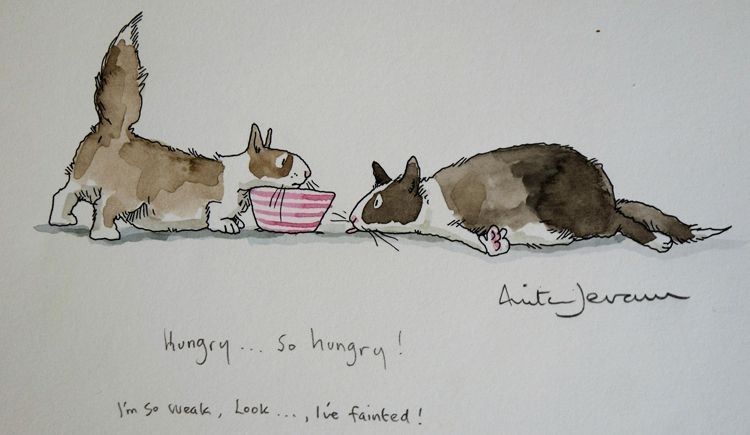 Anita Jeram
Hungry ... So hungry!
I'm so weak, Look ..., I've fainted!